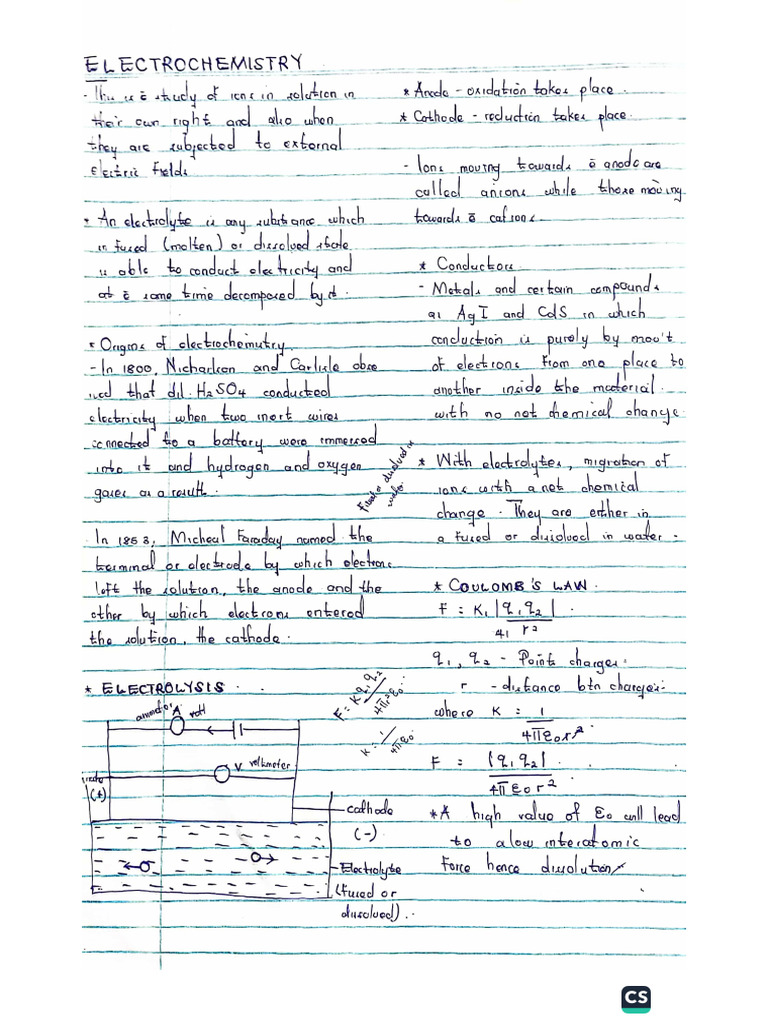 ELECTROCHEMISTRY
- This is ē study of ions in solution in
their own right and also when
they are subjected to external
Electric Fields
* An electrolyte is any substance which
in fused (molten) or dissolved state
is able to conduct electricity and
at ē same time decomposed by it.
* Origins of electrochemistry
- In 1800, Nicholson and Carlisle obse
rved that dil. H₂SO₄ conducted
electricity when two inert wires
connected to a battery were immersed
into it and hydrogen and oxygen
gases as a result.
In 1853, Micheal Faraday named the
terminal or electrode by which electrons
left the solution, the anode and the
other by which electrons entered
the solution, the cathode.
* ELECTROLYSIS
A
V voltmeter
(+)
cathode
(-)
Electrolyte
(fused or
dissolved)..
* Anode - oxidation takes place.
* Cathode - reduction takes place.
- Ions moving towards ē anode are
called anions while those moving
towards ē cations.
* Conductors
- Metals and certain compounds
as AgI and CdS in which
conduction is purely by mov't
of electrons from one place to
another inside the material
with no net chemical change.
Fused or dissolved in
water
* With electrolytes, migration of
ions with a net chemical
change. They are either in
a fused or dissolved in water.
* COULOMB'S LAW
F = K, |q₁q₂|
r²
q₁, q₂ - Point charges.
r - distance btn charges.
F = Kq₁q₂
4πr²ε₀
K = 1
4πε₀
where K = 1
4πε₀r²
F = |q₁q₂|
4πε₀r²
* A high value of ε₀ will lead
to a low interatomic
Force hence dissolution
CS